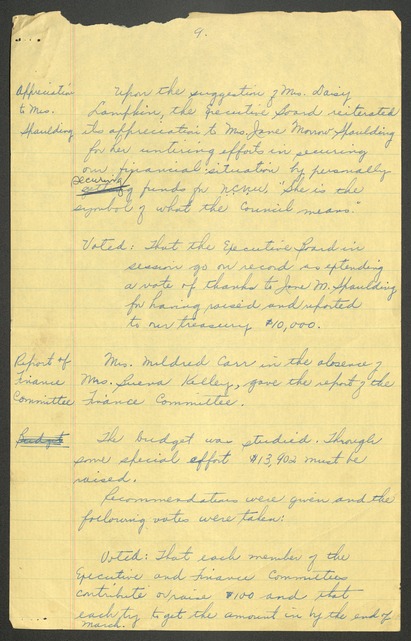 9.
Appreciation
to Mrs.
Spaulding
Upon the suggestion of Mrs. Daisy
Lampkin, the Executive Board reiterated
its appreciation to Mrs. Jane Morrow Spaulding
for her untiring efforts in securing
our financial situation by personally
securing
getting funds for NCNW. "She is the
symbol of what the Council means."
Voted: That the Executive Board in
session go on record as extending
a vote of thanks to Jane M. Spaulding
for having raised and reported
to our treasury $10,000.
Report of
Finance
Committee
Mrs. Mildred Carr in the absence of
Mrs. Sueva Kelley, gave the report of the
Finance Committee.
Budget
The budget was studied. Through
some special effort $13,902 must be
raised.
Recommendations were given and the
following votes were taken:
Voted: That each member of the
Executive and Finance Committees
contribute or raise $100 and that
each try to get the amount in by the end of
March.